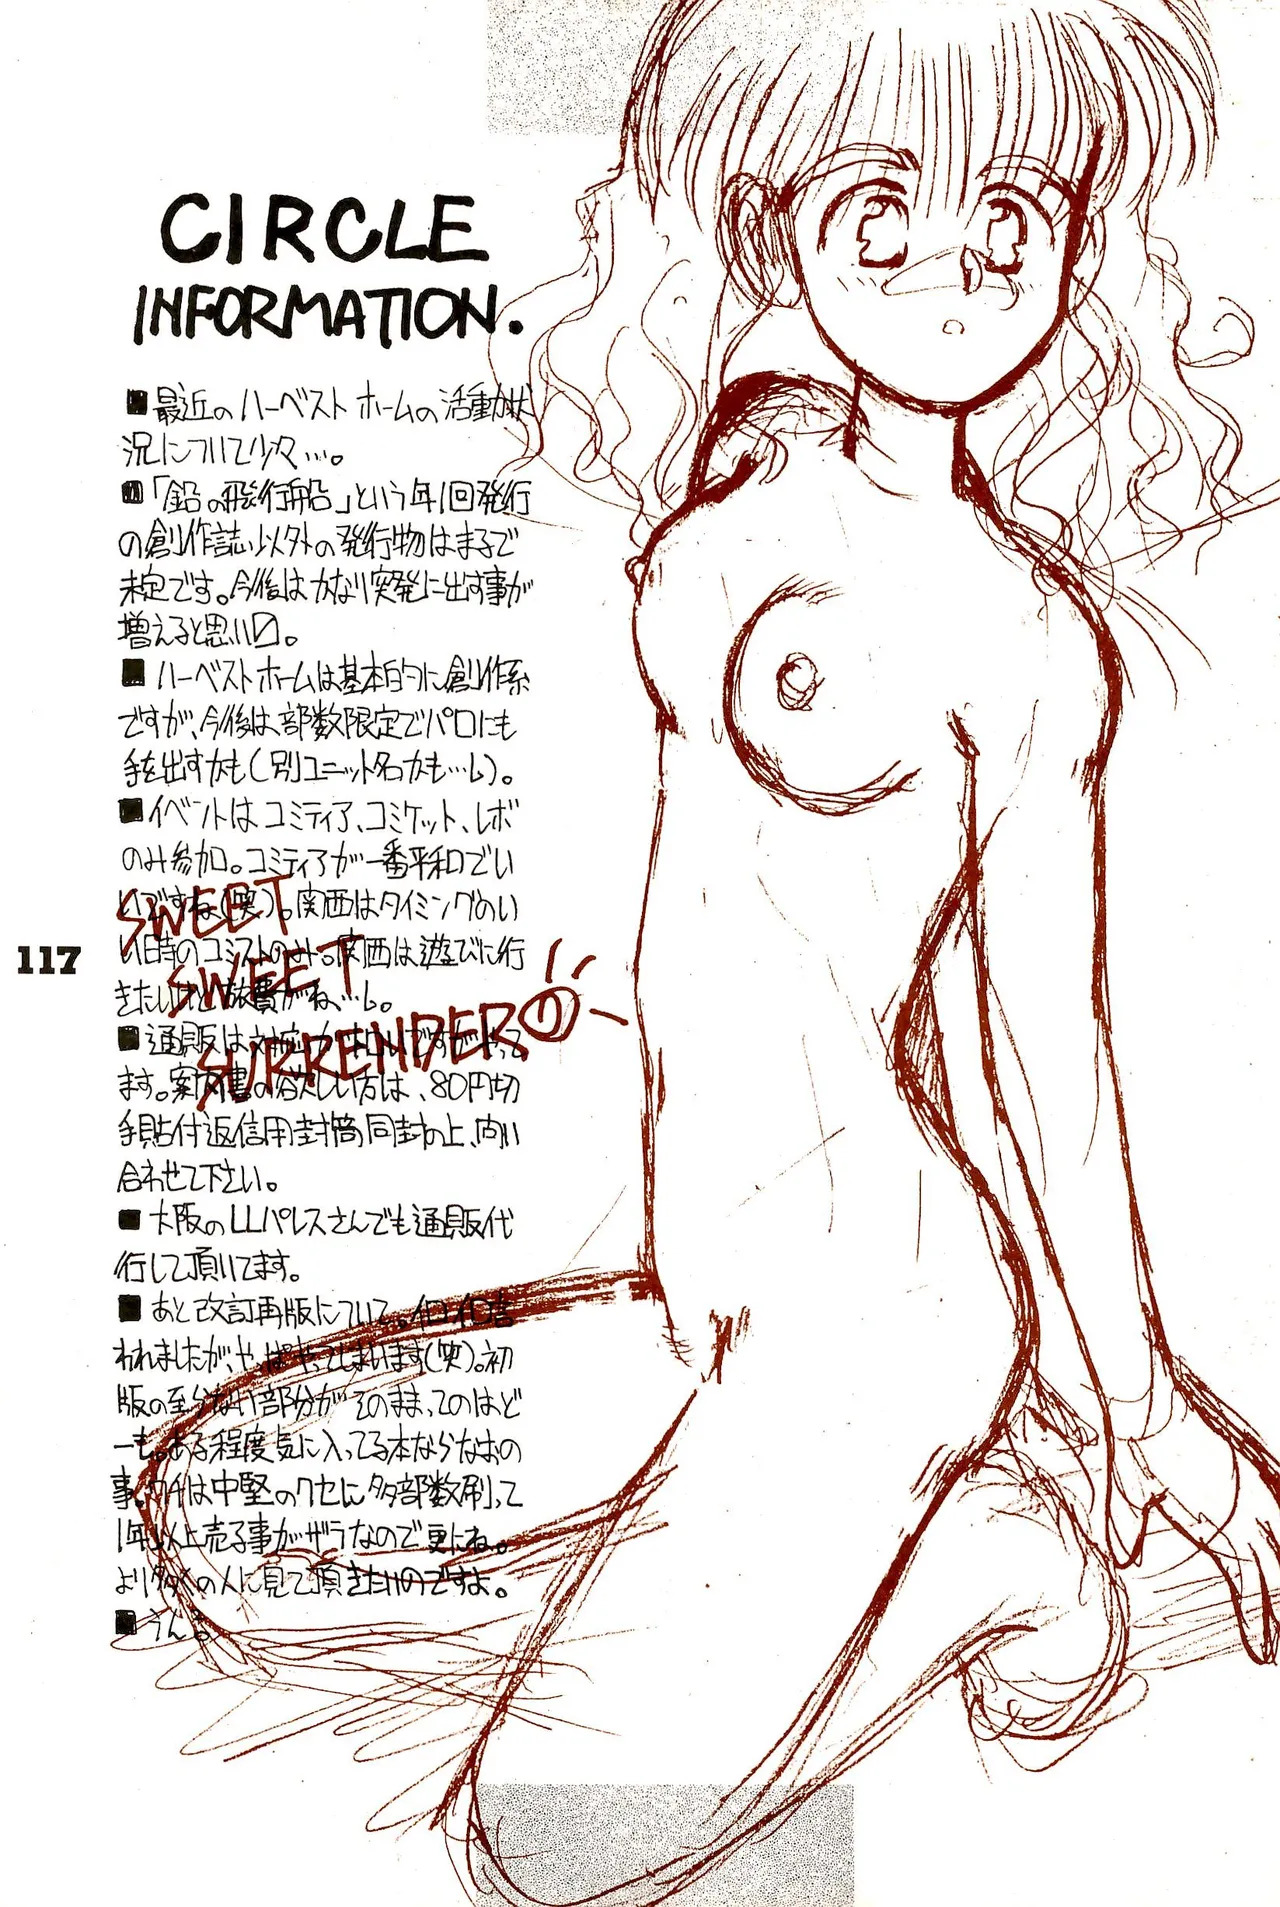 CIRCLE
INFORMATION.
■最近のハーベストホームの活動状
況について少々…。
■「鉛の飛行船」という年1回発行
の創作誌以外の発行物はまるで
未定です。今後はかなり突発に出す事が
増えると思います。
■ハーベストホームは基本的に創作系
ですが、今後は部数限定でパロにも
手を出すかも(別ユニット名かも…し)。
■イベントはコミティア、コミケット、レボ
のみ参加。コミティアが一番平和でい
いですね(笑)。関西はタイミングのい
い日時のコミストのみ。関西は遊びに行
きたいけど旅費がね…し。
SWEET
SWEET
SURRENDER
■通販は対応が ですがやって
ます。案内書の欲しい方は、80円切
手貼付返信用封筒同封の上、問い
合わせて下さい。
■大阪のLLパレスさんでも通販代
行して頂いてます。
■あと改訂再版について。イロイロ言
われましたが、やっぱやってしまいます(笑)。初
版の至らない部分がそのまま、ってのはど
ーも。ある程度気に入ってる本ならなおの
事。ウチは中堅のクセに多部数刷って
1年以上売る事がザラなので更にね。
より多くの人に見て頂きたいのですよ。
■うんる
117